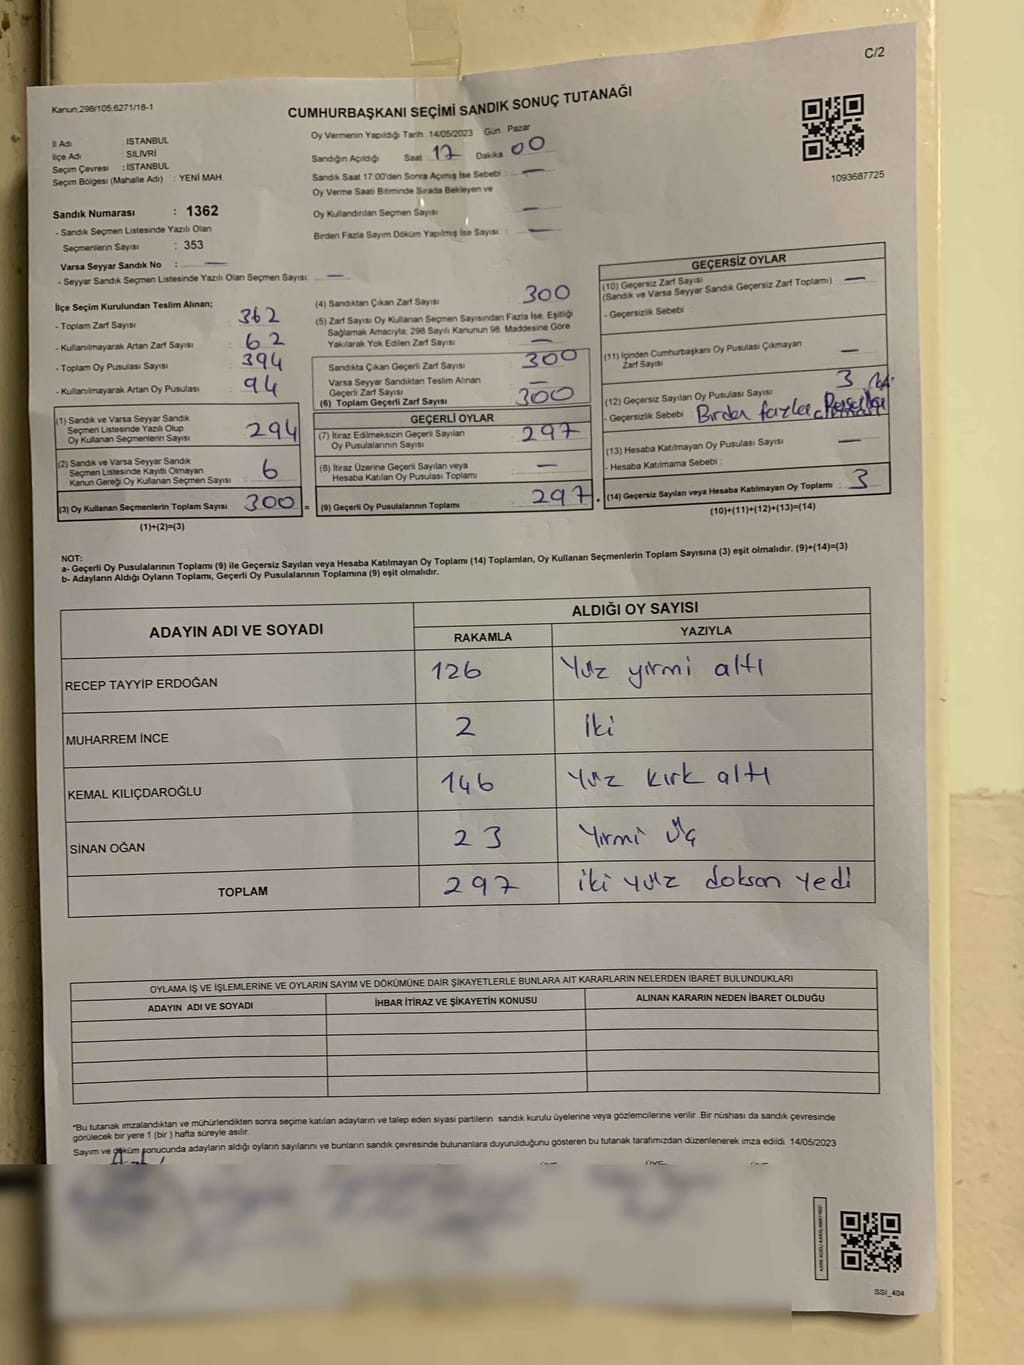 C/2
Kanun.298/105,6271/18-1
CUMHURBAŞKANI SEÇİMİ SANDIK SONUÇ TUTANAĞI
İl Adı : İSTANBUL
İlçe Adı : SİLİVRİ
Seçim Çevresi : İSTANBUL
Seçim Bölgesi (Mahalle Adı) : YENİ MAH.
Oy Vermenin Yapıldığı Tarih :14/05/2023 Gün : Pazar
Sandığın Açıldığı Saat 17 Dakika 00
Sandık Saat 17:00'den Sonra Açımış İse Sebebi : —
Oy Verme Saati Bitiminde Sırada Bekleyen ve
Oy Kullandırılan Seçmen Sayısı : —
Birden Fazla Sayım Döküm Yapılmış İse Sayısı : —
1093687725
Sandık Numarası : 1362
- Sandık Seçmen Listesinde Yazılı Olan
Seçmenlerin Sayısı : 353
Varsa Seyyar Sandık No : —
- Seyyar Sandık Seçmen Listesinde Yazılı Olan Seçmen Sayısı: —
İlçe Seçim Kurulundan Teslim Alınan;
- Toplam Zarf Sayısı : 362
- Kullanılmayarak Artan Zarf Sayısı : 62
- Toplam Oy Pusulası Sayısı : 394
- Kullanılmayarak Artan Oy Pusulası : 94
(1) Sandık ve Varsa Seyyar Sandık
Seçmen Listesinde Yazılı Olup
Oy Kullanan Seçmenlerin Sayısı : 294
(2) Sandık ve Varsa Seyyar Sandık
Seçmen Listesinde Kayıtlı Olmayan
Kanun Gereği Oy Kullanan Seçmen Sayısı : 6
(3) Oy Kullanan Seçmenlerin Toplam Sayısı : 300 =
(1)+(2)=(3)
(4) Sandıktan Çıkan Zarf Sayısı : 300
(5) Zarf Sayısı Oy Kullanan Seçmen Sayısından Fazla İse, Eşitliği
Sağlamak Amacıyla, 298 Sayılı Kanunun 98. Maddesine Göre
Yakılarak Yok Edilen Zarf Sayısı : —
Sandıkta Çıkan Geçerli Zarf Sayısı : 300
Varsa Seyyar Sandıktan Teslim Alınan
Geçerli Zarf Sayısı : —
(6) Toplam Geçerli Zarf Sayısı : 300
GEÇERLİ OYLAR
(7) İtiraz Edilmeksizin Geçerli Sayılan
Oy Pusulalarının Sayısı : 297
(8) İtiraz Üzerine Geçerli Sayılan veya
Hesaba Katılan Oy Pusulası Toplamı : —
(9) Geçerli Oy Pusulalarının Toplamı : 297 +
GEÇERSİZ OYLAR
(10) Geçersiz Zarf Sayısı
(Sandık ve Varsa Seyyar Sandık Geçersiz Zarf Toplamı) : —
- Geçersizlik Sebebi :
(11) İçinden Cumhurbaşkanı Oy Pusulası Çıkmayan
Zarf Sayısı : —
(12) Geçersiz Sayılan Oy Pusulası Sayısı : 3
- Geçersizlik Sebebi : Birden fazla
(13) Hesaba Katılmayan Oy Pusulası Sayısı : —
- Hesaba Katılmama Sebebi :
(14) Geçersiz Sayılan veya Hesaba Katılmayan Oy Toplamı : 3
(10)+(11)+(12)+(13)=(14)
NOT:
a- Geçerli Oy Pusulalarının Toplamı (9) ile Geçersiz Sayılan veya Hesaba Katılmayan Oy Toplamı (14) Toplamları, Oy Kullanan Seçmenlerin Toplam Sayısına (3) eşit olmalıdır. (9)+(14)=(3)
b- Adayların Aldığı Oyların Toplamı, Geçerli Oy Pusulalarının Toplamına (9) eşit olmalıdır.
ADAYIN ADI VE SOYADI
ALDIĞI OY SAYISI
RAKAMLA YAZIYLA
RECEP TAYYİP ERDOĞAN 126 Yüz yirmi altı
MUHARREM İNCE 2 İki
KEMAL KILIÇDAROĞLU 146 Yüz kırk altı
SİNAN OĞAN 23 Yirmi üç
TOPLAM 297 iki yüz doksan yedi
OYLAMA İŞ VE İŞLEMLERİNE VE OYLARIN SAYIM VE DÖKÜMÜNE DAİR ŞİKAYETLERLE BUNLARA AİT KARARLARIN NELERDEN İBARET BULUNDUKLARI
ADAYIN ADI VE SOYADI İHBAR İTİRAZ VE ŞİKAYETİN KONUSU ALINAN KARARIN NEDEN İBARET OLDUĞU
*Bu tutanak imzalandıktan ve mühürlendikten sonra seçime katılan adayların ve talep eden siyasi partilerin sandık kurulu üyelerine veya gözlemcilerine verilir. Bir nüshası da sandık çevresinde
görülecek bir yere 1 (bir) hafta süreyle asılır.
Sayım ve döküm sonucunda adayların aldığı oyların sayılarını ve bunların sandık çevresinde bulunanlara duyurulduğunu gösteren bu tutanak tarafımızdan düzenlenerek imza edildi. 14/05/2023
SSI_404